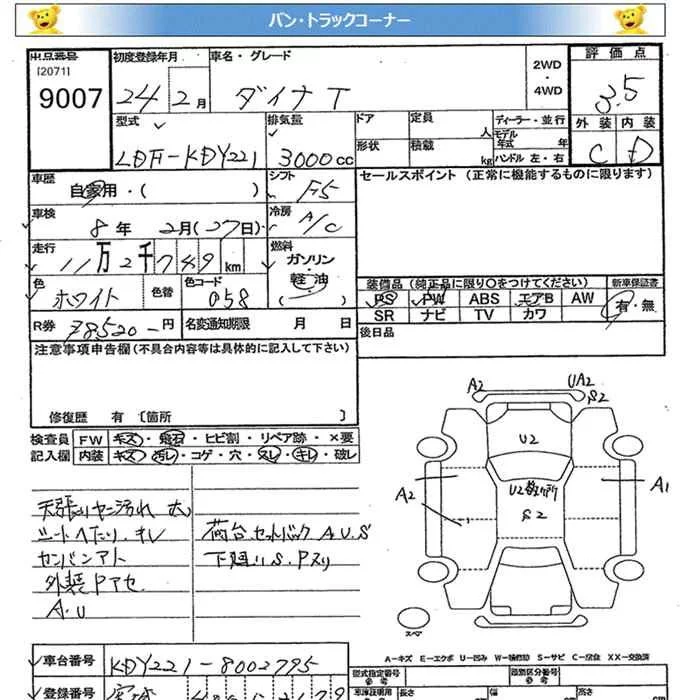 バン・トラックコーナー
出品番号
[2071]
9007
初度登録年月
24年 2月
車名・グレード
ダイナ T
2WD
・
4WD
評価点
3.5
外装 内装
C D
型式
LDF-KDY221
排気量
3000cc
ドア
定員
人
ディーラー・並行
モデル
年式 年
形状
積載
kg
ハンドル 左・右
車歴
自家用・( )
シフト
F5
セールスポイント (正常に機能するものに限ります)
車検
8年 2月(27日)
冷房
A/C
走行
11万2千749km
燃料
ガソリン・
軽油
( )
色
ホワイト
色替
色コード
058
装備品 (純正品に限り○をつけてください)
PS PW ABS エアB AW
SR ナビ TV カワ
新車保証書
有・無
R券
78520-円
名変通知期限 月 日
後日品
注意事項申告欄(不具合内容等は具体的に記入して下さい)
修復歴 有 [箇所 ]
検査員
記入欄
FW キズ・飛石・ヒビ割・リペア跡・×要
内装 キズ・汚レ・コゲ・穴・スレ・キレ・破レ
天張りヤニ汚れ 大
シートヘたり、キレ
カンバンアト
外装Pアセ
A.U
荷台セットバック A.U.S
下廻りS.Pスリ
A2
UA2
S2
U2
U2
S2
A2
A1
スペア
A-キズ E-エクボ U-凹み W-補修跡 S-サビ C-腐食 XX-交換済
車台番号
KDY221-8002795
登録番号
型式指定番号
参考
類別区分番号
参考
車庫証明用
長さ
幅
高さ